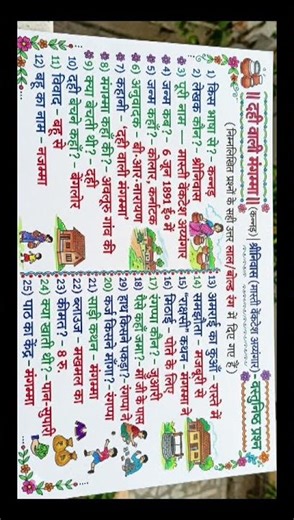 || दही वाली मंगम्मा || (कन्नड़) | श्रीनिवास (मास्ती वेंकटेश अय्यंगार) - वस्तुनिष्ठ प्रश्न
( निम्नलिखित प्रश्नों के सही उत्तर लाल/बोल्ड रंग में दिए गए हैं)
1) किस भाषा से? - कन्नड़
2) लेखक कौन? - श्रीनिवास
3) पूरी नाम — मास्ती वेंकटेश अय्यंगार
4) जन्म कब? - 6 जून 1891 ई०
5) जन्म कहाँ? - कोलार, कर्नाटक
6) अनुवादक - बी॰आर॰नारायण
7) कहानी - दही वाली मंगम्मा
8) मंगम्मा कहाँ की? - अवलूर गांव की
9) क्या बेचती थी? - दही
10) दही बेचने कहाँ? - बेंगलोर
11) विवाद - बहू से
12) बहू का नाम - नंजम्मा
13) अमराई का कुआँ - रास्ते में
14) समझौता - मजबूरी से
15) "राक्षसी" कथन - मंगम्मा ने
16) मिठाई - पोते के लिए
17) रंगप्पा कौन? - जुआरी
18) पैसे कहाँ जमा? - माँ जी के पास
19) हाथ किसने पकड़ा? - रंगप्पा ने
20) कर्ज किसने माँगा? - रंगप्पा
21) साड़ी कथन - मंगम्मा
22) ब्लाउज - मखमल का
23) कीमत? - 8 रु.
24) क्या खाती थी? - पान-सुपारी
25) पाठ का केंद्र - मंगम्मा